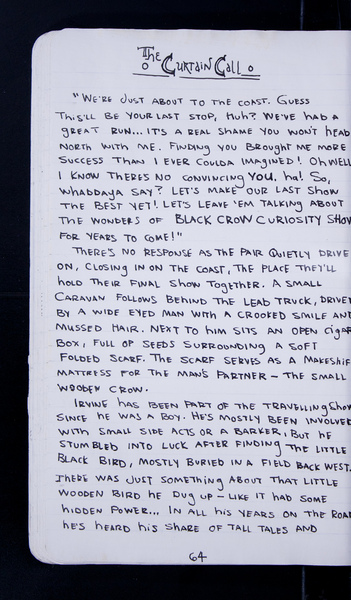 The Curtain Call
"We're just about to the coast. Guess
this'll be your last stop, huh? We've had a
great run... it's a real shame you won't head
north with me. Finding you brought me more
success than I ever coulda imagined! Oh well
I know there's no convincing you, ha! So,
whabdaya say? Let's make our last show
the best yet! Let's leave 'em talking about
the wonders of BLACK CROW CURIOSITY SHOW
for years to come!"
There's no response as the pair quietly drive
on, closing in on the coast, the place they'll
hold their final show together. A small
caravan follows behind the lead truck, driven
by a wide eyed man with a crooked smile and
mussed hair. Next to him sits an open cigar
box, full of seeds surrounding a soft
folded scarf. The scarf serves as a makeshif
mattress for the man's partner – the small
wooden crow.
Irvine has been part of the travelling show
since he was a boy. He's mostly been involved
with small side acts or a barker, but he
stumbled into luck after finding the little
black bird, mostly buried in a field back west.
There was just something about that little
wooden bird he dug up – like it had some
hidden power... In all his years on the road
he's heard his share of tall tales and
64